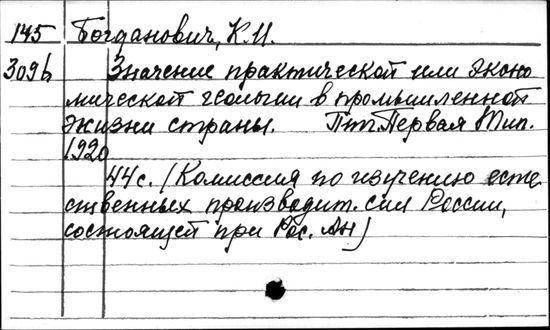 145 Богданович, К.И.
309b Значение практической или эконо
мической геологии в промышленной
жизни страны. Птг. Первая Тип.
1920
44 с. (Комиссия по изучению есте
ственных производит. сил России,
состоящей при Рос. Ан)